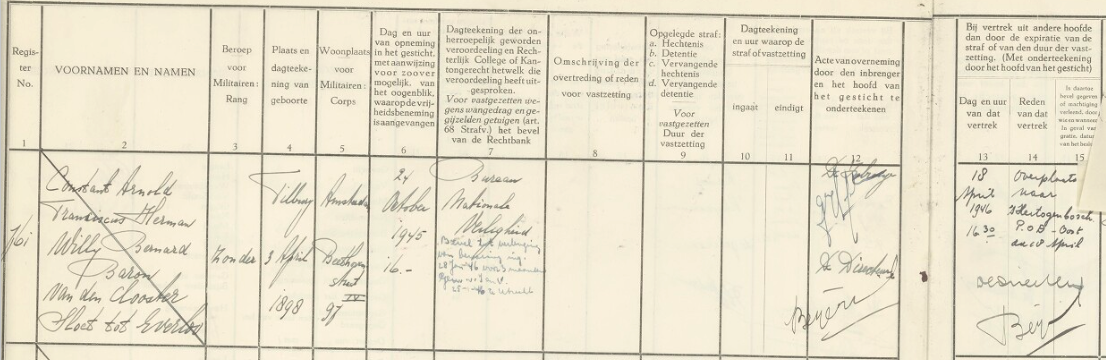 Regis-
ter
No.
VOORNAMEN EN NAMEN
Beroep
voor
Militairen:
Rang
Plaats en
dagteeke-
ning van
geboorte
Woonplaats
voor
Militairen:
Corps
Dag en uur
van opneming
in het gesticht,
met aanwijzing
voor zoover
mogelijk, van
het oogenblik,
waarop de vrij-
heidsbeneming
is aangevangen
Dagteekening der on-
herroepelijk geworden
veroordeeling en Rech-
terlijk College of Kan-
tongerecht hetwelk die
veroordeeling heeft uit-
gesproken.
Voor vastgezetten we-
gens wangedrag en ge-
gijzelden getuigen (art.
68 Strafv.) het bevel
van de Rechtbank
Omschrijving der
overtreding of reden
voor vastzetting
Opgelegde straf:
a. Hechtenis
b. Detentie
c. Vervangende
hechtenis
d. Vervangende
detentie
Voor
vastgezetten
Duur der
vastzetting
Dagteekening
en uur waarop de
straf of vastzetting
ingaat
eindigt
Acte van overneming
door den inbrenger
en het hoofd van
het gesticht te
onderteekenen
Bij vertrek uit andere hoofde
dan door de expiratie van de
straf of van den duur der vast-
zetting. (Met onderteekening
door het hoofd van het gesticht)
Dag en uur
van dat
vertrek
Reden
van dat
vertrek
1 2 3 4 5 6 7 8 9 10 11 12 13 14 15
Constant Arnold
Franciscus Herman
Willy Bernard
Baron
van den Clooster
Sloet tot Everlo
Zonder
Tilburg
3 April
1898
Amsterdam
Beethoven
straat
97
24
October
1945
16.-
Bureau
Nationale
Veiligheid
De Directeur
18
April
1946
16 30
Overplaats
naar
's Hertogenbosch
P.O.B - Oost